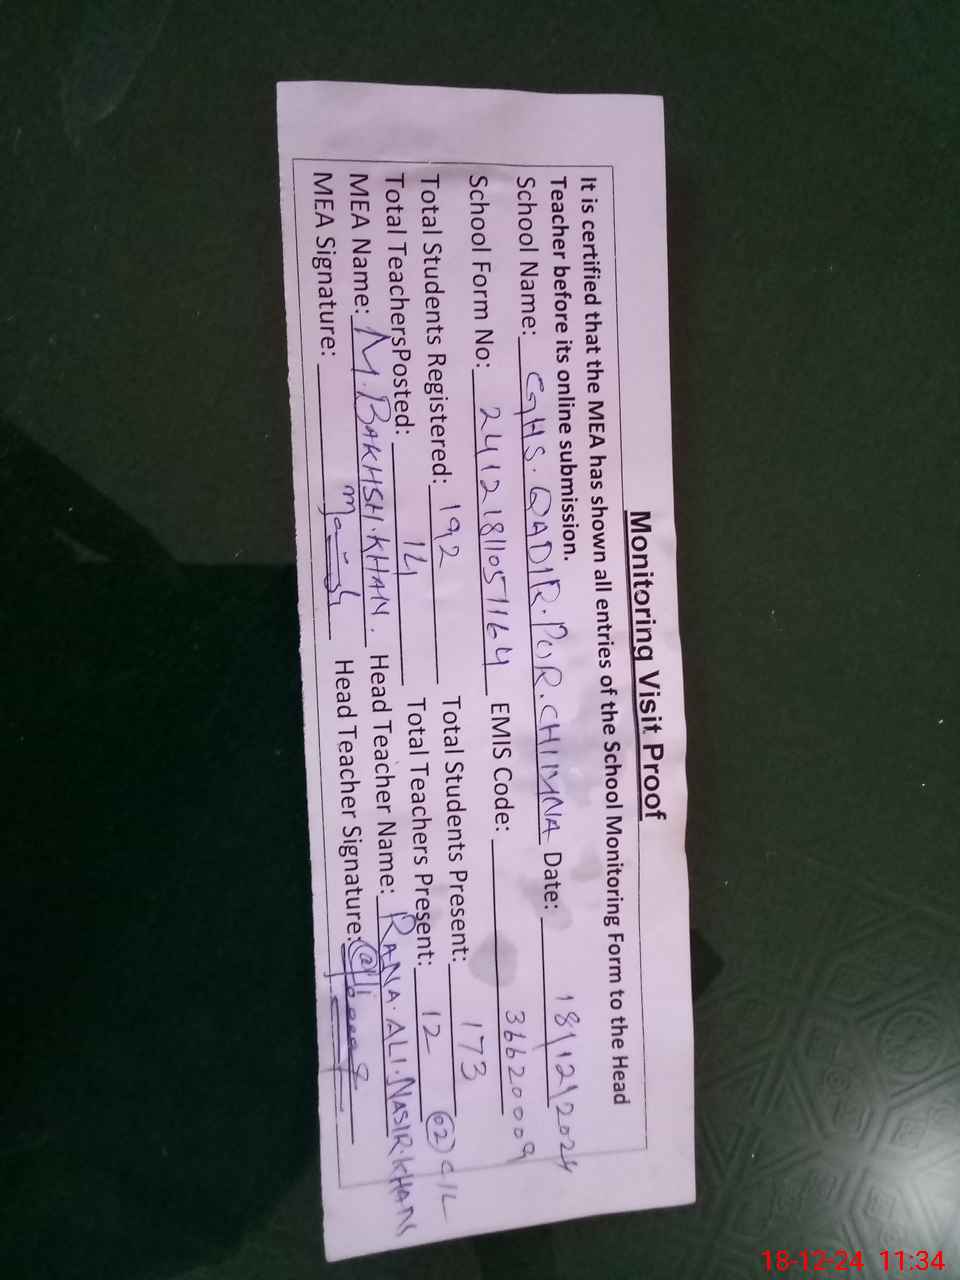 Monitoring Visit Proof
It is certified that the MEA has shown all entries of the School Monitoring Form to the Head
Teacher before its online submission.
School Name: GHS. QADIR. PUR. CHIMNA Date: 18/12/2024
School Form No: 241218110571164 EMIS Code: 36620009
Total Students Registered: 192 Total Students Present: 173
Total TeachersPosted: 14 Total Teachers Present: 12 (02) C/L
MEA Name: M. BAKHSH. KHAN. Head Teacher Name: RANA. ALI. NASIR. KHAN
MEA Signature: Head Teacher Signature:
18-12-24 11:34